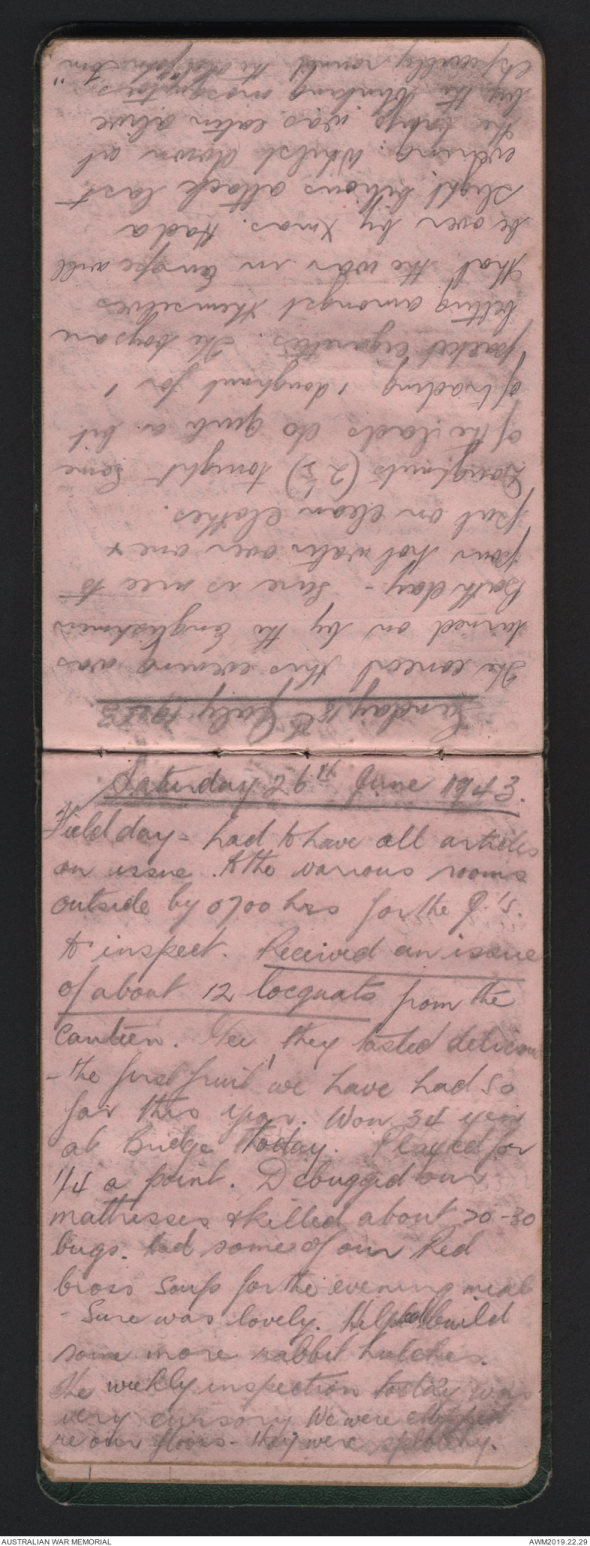 Saturday 26th June 1943.
Field day - had to have all articles
on issue to the various rooms
outside by 0700 hrs for the J.'s.
to inspect. Received an issue
of about 12 locquats from the
Canteen. Gee, they tasted delicious
- the first fruit we have had so
far this year. Won 34 yen
at Bridge today. Played for
1/4 a point. Debugged our
mattresses & killed about 20-30
bugs. Had some of our Red
Cross soup for the evening meal
- Sure was lovely. Helped build
some more rabbit hutches.
The weekly inspection today was
very cursory We were
re our floors - they were splotchy.
Sunday 18th July 1943
The concert this evening was
turned on by the Englishmen
Bath day - sure is nice to
pour hot water over one &
put on clean clothes.
Doughnuts (2½) tonight Some
of the lads do quite a bit
of trading 1 doughnut for 1
packet cigarettes. The boys are
betting amongst themselves
that the war in Europe will
be over by Xmas. Had a
slight bilious attack last
evening. Whilst down at
the was eaten alive
by the blinking mosquitos
especially round the
AUSTRALIAN WAR MEMORIAL
AWM2019.22.29